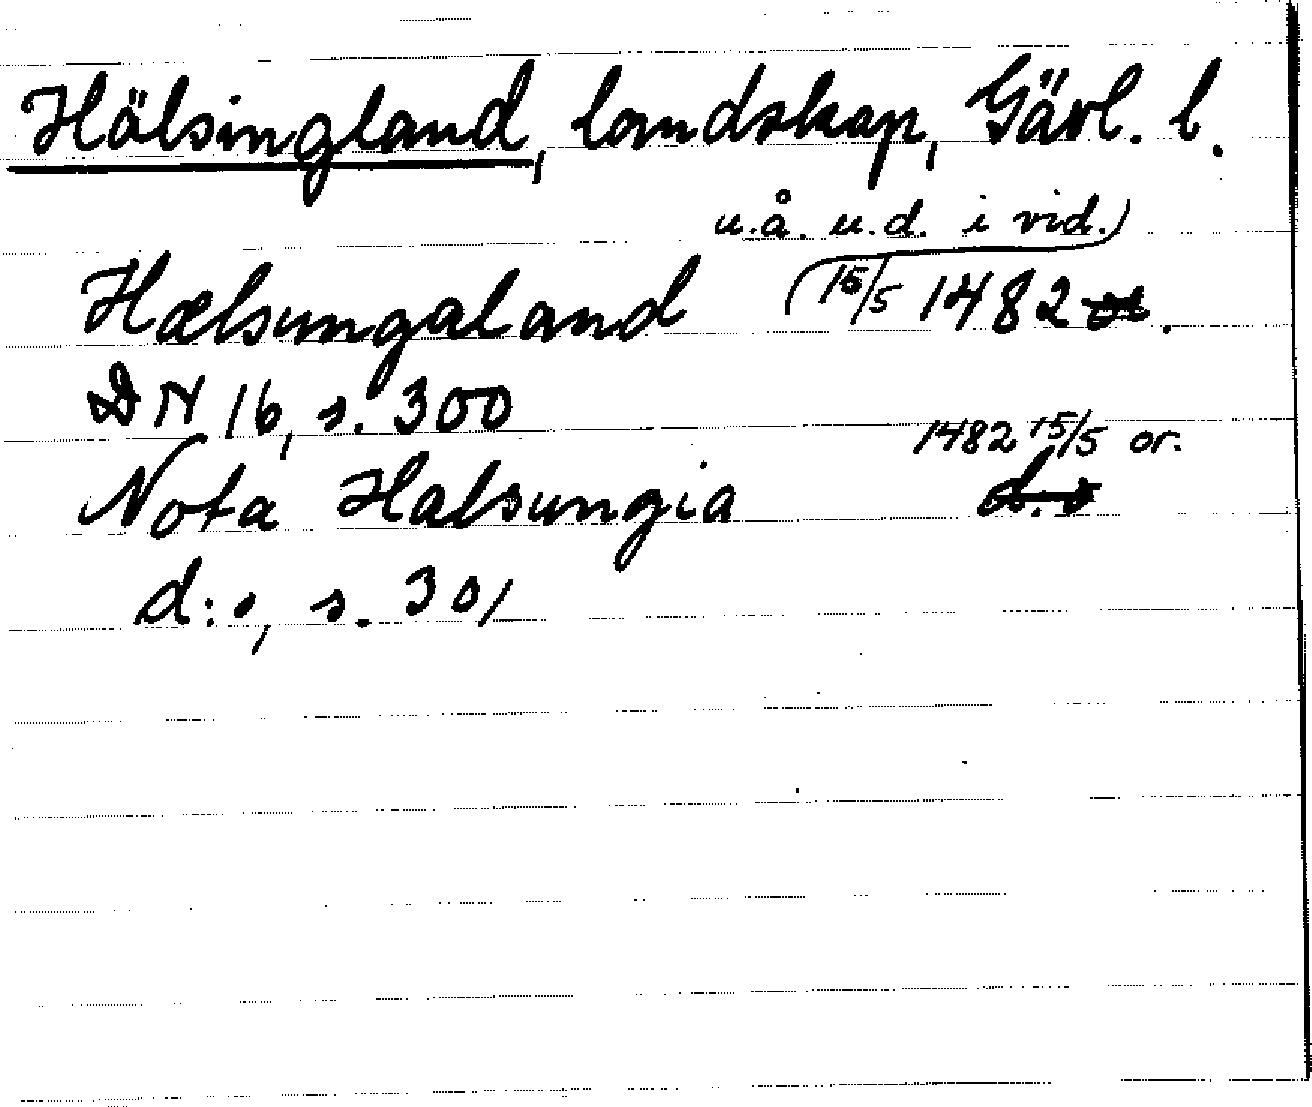 Hälsingland, landskap, Gävl. l.
u.å. u.d. i vid.
Hælsungaland (15/5 1482
DN 16, s. 300
1482 15/5 or.
Nota Halsungia
d:o, s. 301